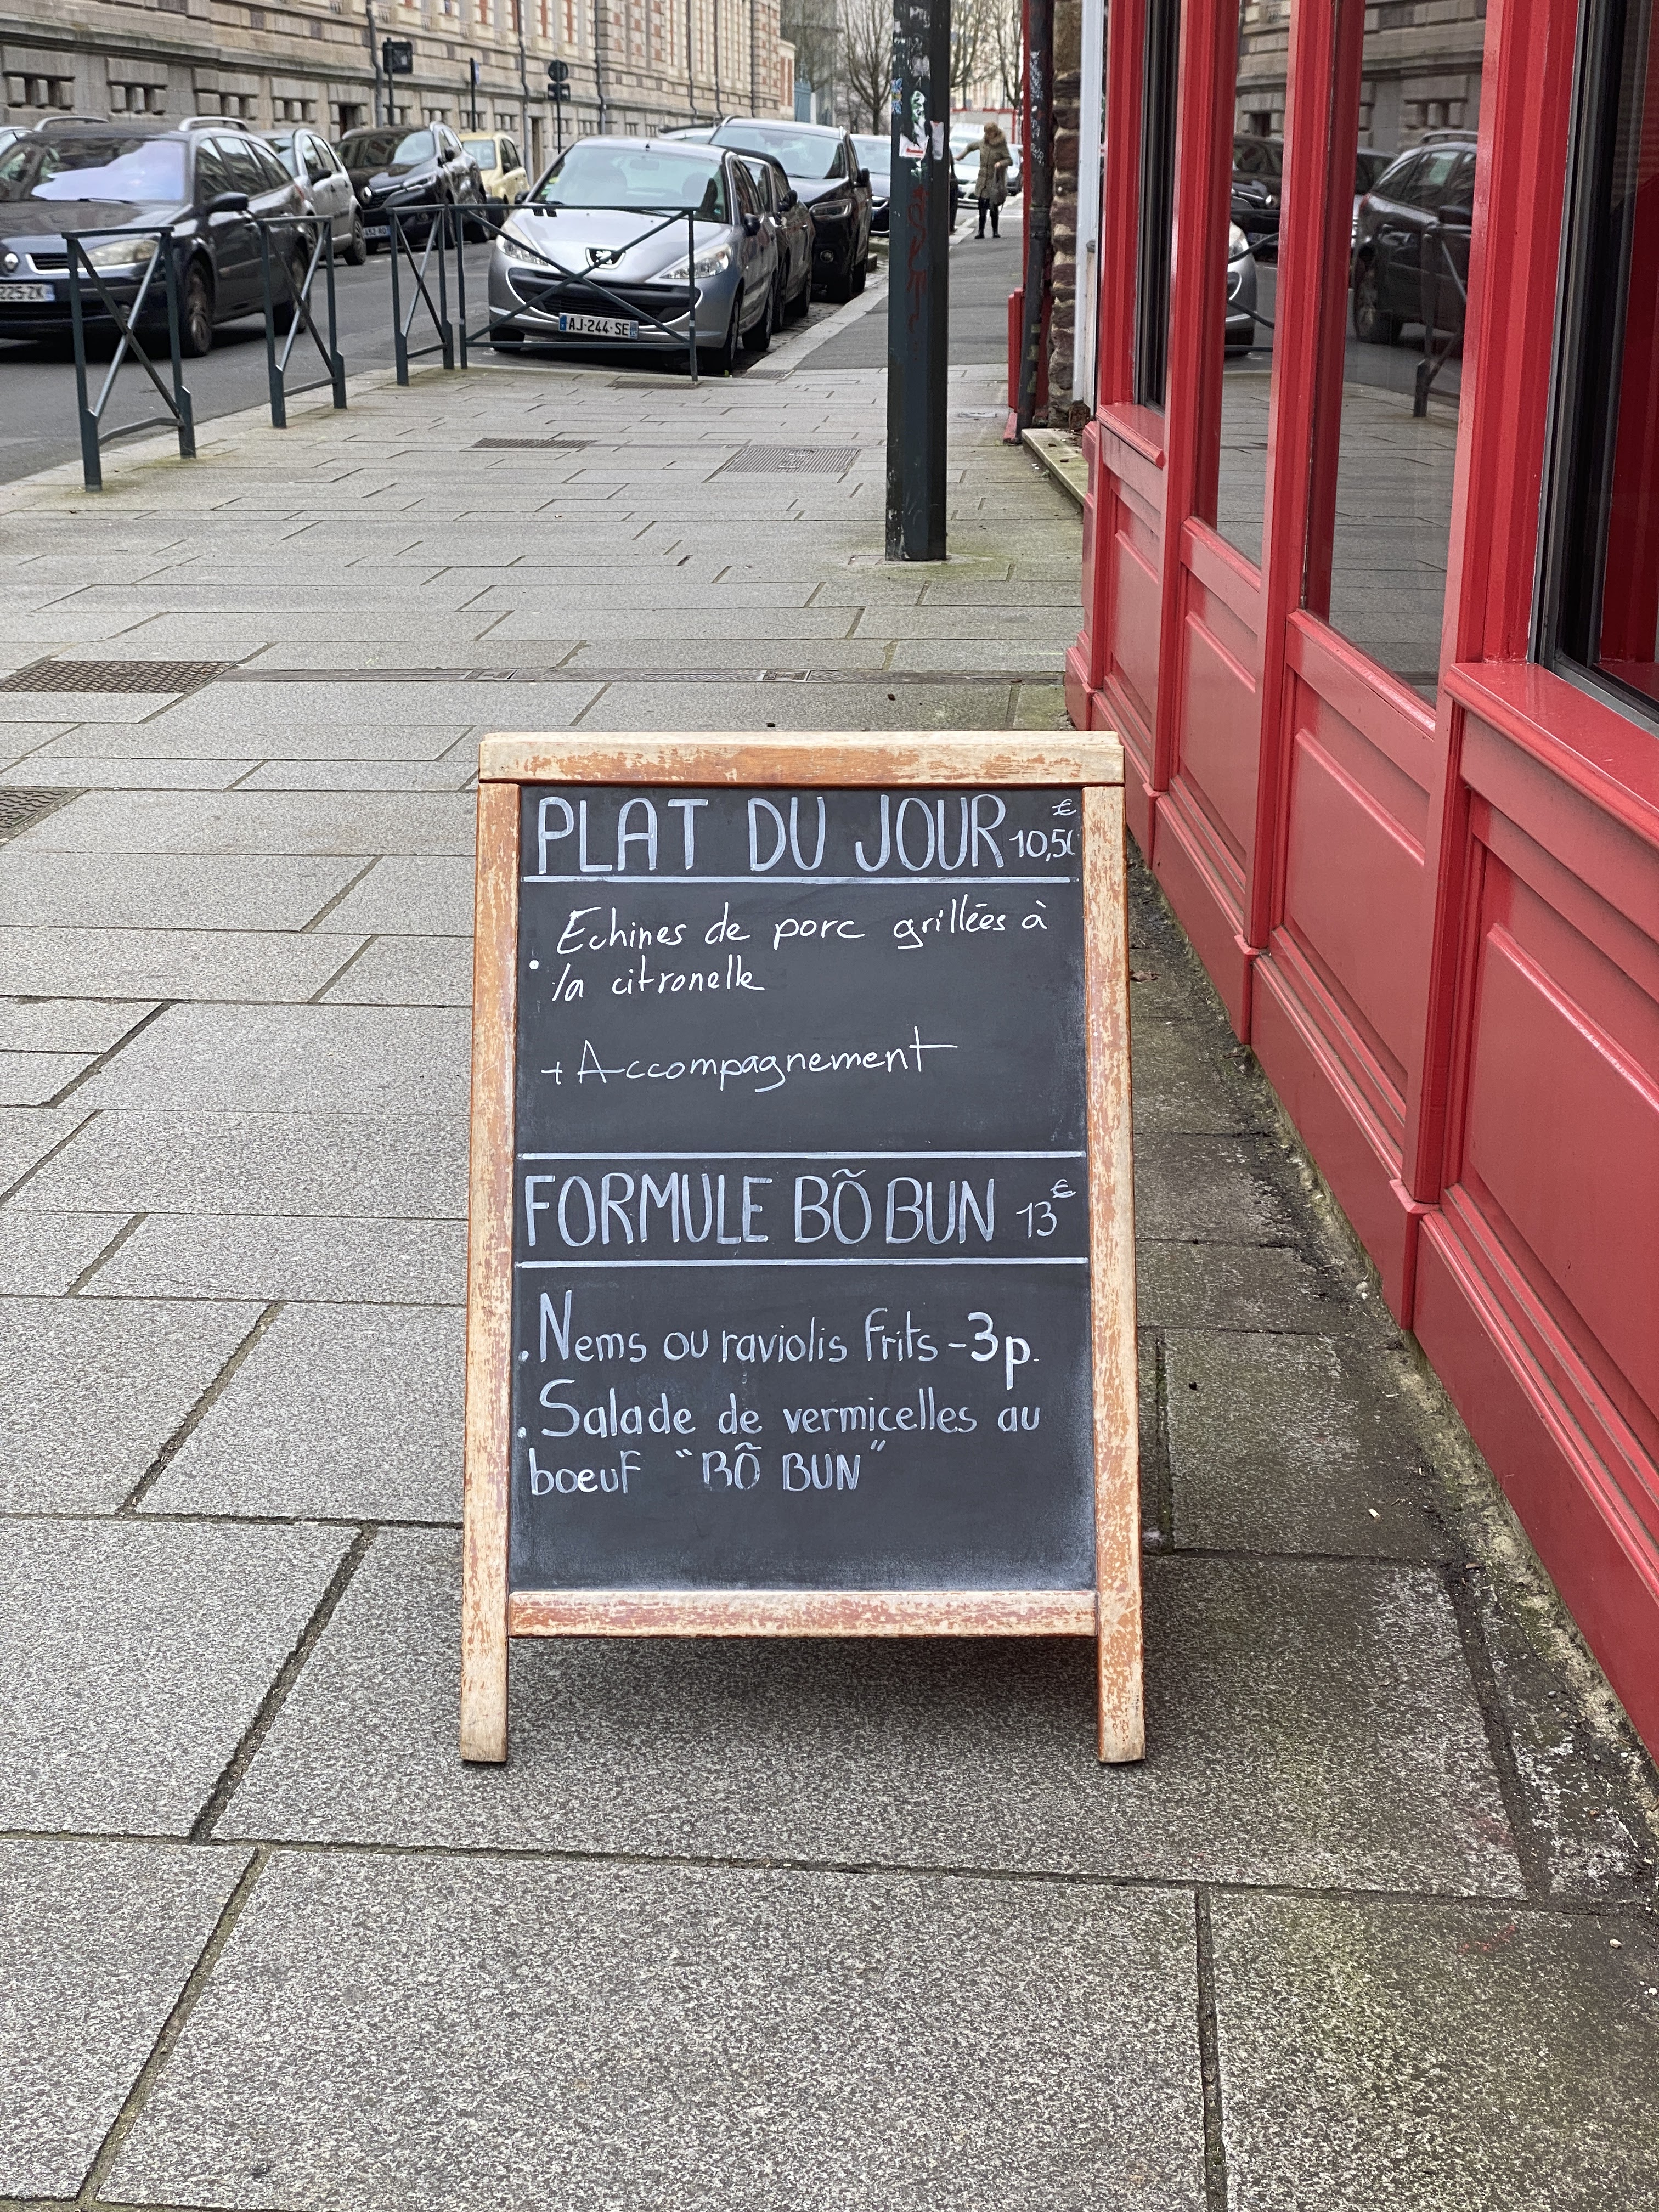 PLAT DU JOUR 10,50 €
. Echines de porc grillées à
la citronelle
+ Accompagnement
FORMULE BÕ BUN 13€
. Nems ou raviolis frits - 3p.
. Salade de vermicelles au
boeuf "BÕ BUN"
AJ-244-SE
225-ZK